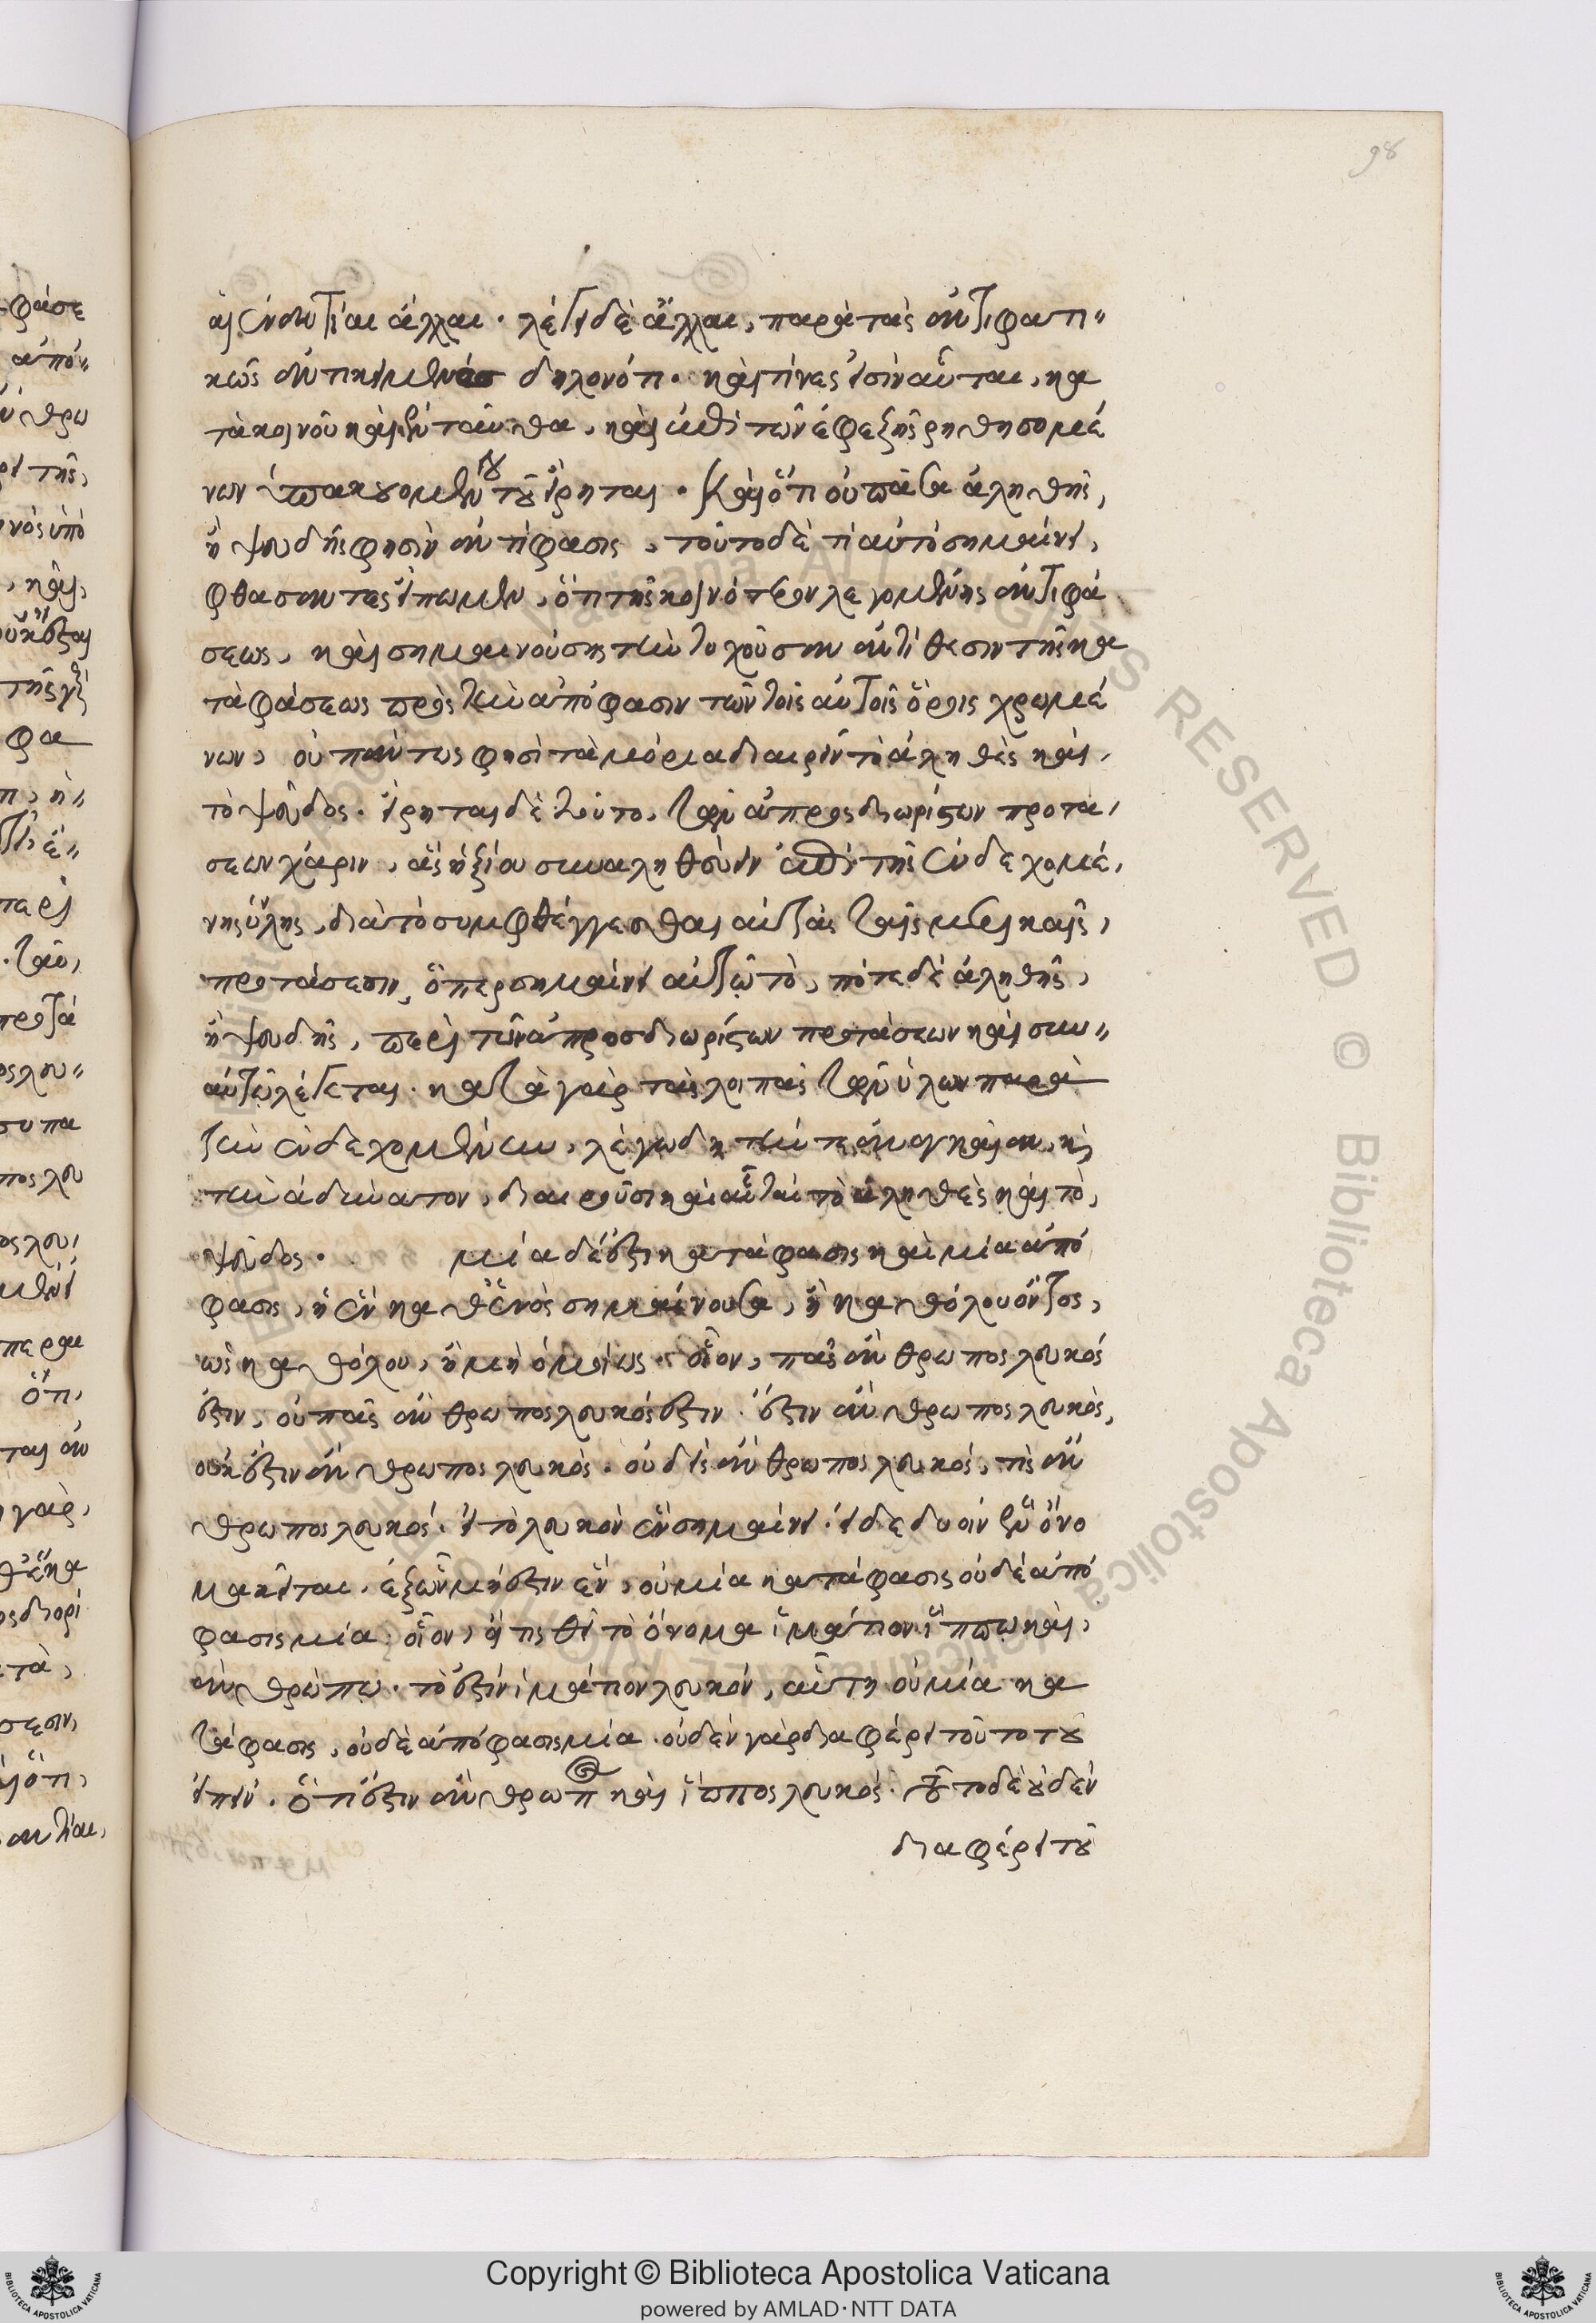 98
αἱ ἐναντίαι ἄλλαι. λέγει δὲ ἄλλαι, παρὰ τὰς ἀντιφατι-
κῶς ἀντικειμένας δηλονότι. καὶ τίνες εἰσὶν αὗται, κα
τὰ κοινοῦ καὶ ἐνταῦθα, καὶ ἐπὶ τῶν ἐφεξῆς ῥηθησομέ
νων ὑπακουομένου τοῦ εἴρηται. Καὶ ὅτι οὐ πᾶσα ἀληθὴς,
ἢ ψευδής φησὶν ἀντίφασις, τοῦτο δὲ τί αὐτὸ σημαίνει,
φθάσαντες εἴπωμεν, ὅτι τῆς κοινότερον λεγομένης ἀντιφά
σεως, καὶ σημαινούσης τὴν τυχοῦσαν ἀντίθεσιν τῆς κα
ταφάσεως πρὸς τὴν ἀπόφασιν τῶν τοῖς αὐτοῖς ὅροις χρωμέ
νων, οὐ πάντως φησὶ τὰ μόρια διαιρεῖν τὸ ἀληθὲς καὶ,
τὸ ψεῦδος. εἴρηται δὲ τοῦτο, τῶν ἀπροσδιορίστων προτά,
σεων χάριν, ἃς ἠξίου συναληθεύειν ἐπὶ τῆς ἐνδεχομέ,
νης ὕλης, διὰ τὸ συμφθέγγεσθαι αὐτὰς ταῖς μερικαῖς,
προτάσεσιν, ὅπερ σημαίνει αὐτῷ τὸ, πότε δὲ ἀληθὴς,
ἢ ψευδής, περὶ τῶν ἀπροσδιορίστων προτάσεων καὶ συν-
αύτῷ λέγεται. κατὰ γὰρ τὰς λοιπὰς τῶν ὑλῶν παρὰ
τὴν ἐνδεχομένην, λέγω δὴ τὴν τε ἀναγκαίαν, κὶ
τὴν ἀδύνατον, διαιροῦσι καὶ αὗται τὸ ἀληθὲς καὶ τὸ,
ψεῦδος. μία δέ ἐστι κατάφασις καὶ μία ἀπό
φασις, ἡ ἓν καθ' ἑνὸς σημαίνουσα, ἢ καθόλου ὄντος,
ὡς καθόλου, ἢ μὴ ὁμοίως. οἷον, πᾶς ἄνθρωπος λευκός
ἐστιν, οὐ πᾶς ἄνθρωπος λευκός ἐστιν. ἔστιν ἄνθρωπος λευκὸς,
οὐκ ἔστιν ἄνθρωπος λευκὸς. οὐδεὶς ἄνθρωπος λευκός, τὶς ἄν
θρωπος λευκός. εἰ τὸ λευκὸν ἓν σημαίνει. εἰ δὲ δυοῖν ἓν ὄνο
μα κεῖται. ἐξ ὧν μή ἐστιν ἕν, οὐ μία κατάφασις οὐδὲ ἀπό
φασις μία. οἷον, εἴ τις θεῖ τὸ ὄνομα ἱμάτιον ἵππῳ καὶ,
ἀνθρώπῳ. τὸ ἐστὶν ἱμάτιον λευκόν, αὕτη οὐ μία κα
τάφασις, οὐδὲ ἀπόφασις μία. οὐδὲν γὰρ διαφέρει τοῦτο τοῦ
εἰπεῖν. ὅτι ἔστιν ἄνθρωπος καὶ ἵππος λευκὸς. τοῦτο δὲ οὐδὲν
διαφέρει τοῦ
Copyright © Biblioteca Apostolica Vaticana
powered by AMLAD·NTT DATA